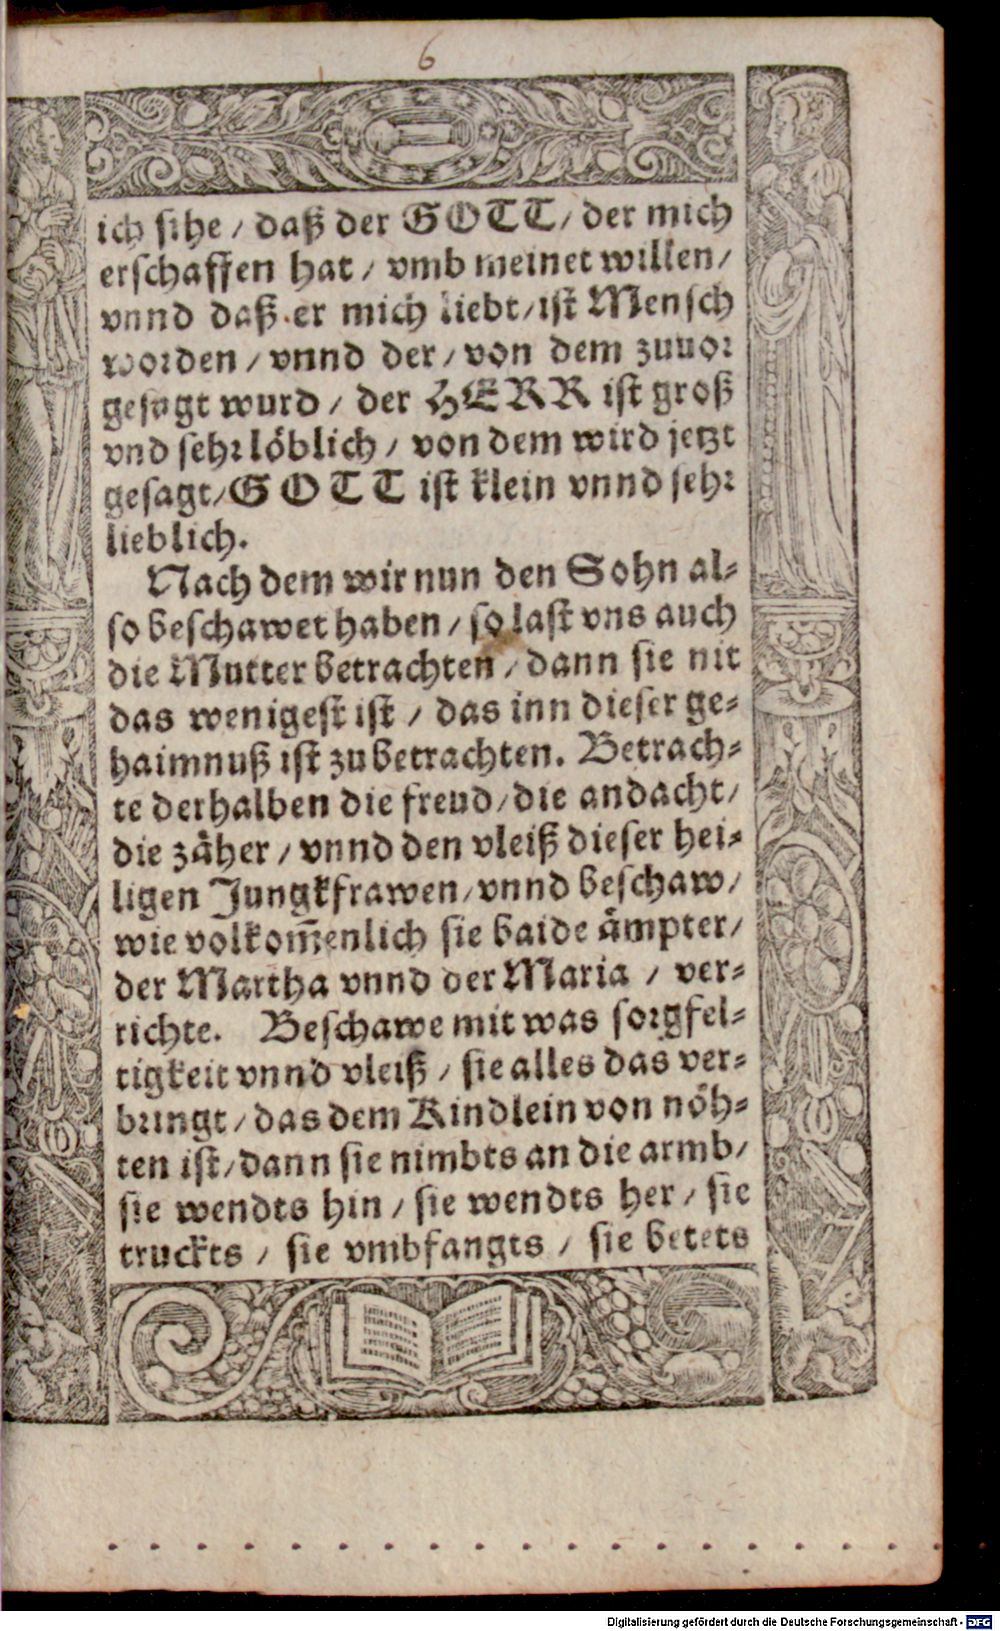 6
ich sihe / daß der GOTT / der mich
erschaffen hat / vmb meinet willen /
vnnd daß er mich liebt / ist Mensch
worden / vnnd der / von dem zuuor
gesagt wurd / der HERR ist groß
vnd sehr löblich / von dem wird jetzt
gesagt / GOTT ist klein vnnd sehr
lieblich.
Nach dem wir nun den Sohn al-
so beschawet haben / so last vns auch
die Mutter betrachten / dann sie nit
das wenigest ist / das inn dieser ge-
haimnuß ist zu betrachten. Betrach-
te derhalben die freud / die andacht /
die zäher / vnnd den vleiß dieser hei-
ligen Jungkfrawen / vnnd beschaw /
wie volkom̃enlich sie baide ämpter /
der Martha vnnd der Maria / ver-
richte. Beschawe mit was sorgfel-
tigkeit vnnd vleiß / sie alles das ver-
bringt / das dem Kindlein von nöh-
ten ist / dann sie nimbts an die armb /
sie wendts hin / sie wendts her / sie
truckts / sie vmbfangts / sie betets
Digitalisierung gefördert durch die Deutsche Forschungsgemeinschaft - DFG